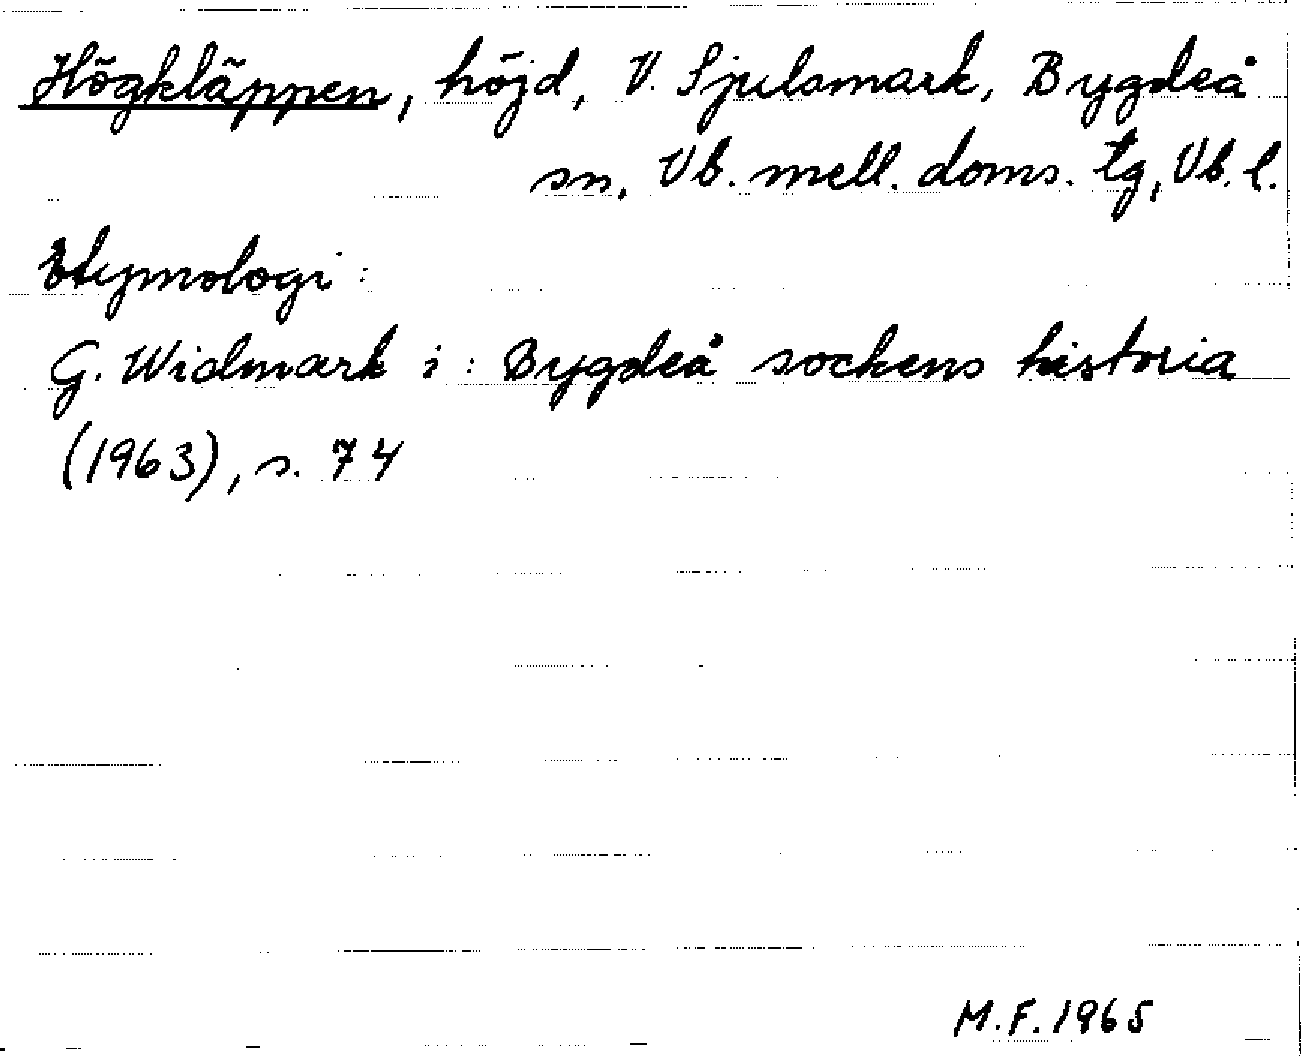 Högkläppen, höjd, V. Sjulsmark, Bygdeå
sn, Vb. mell. doms. tg, Vb. l.
Etymologi:
G. Widmark i: Bygdeå sockens historia
(1963), s. 74
M.F. 1965